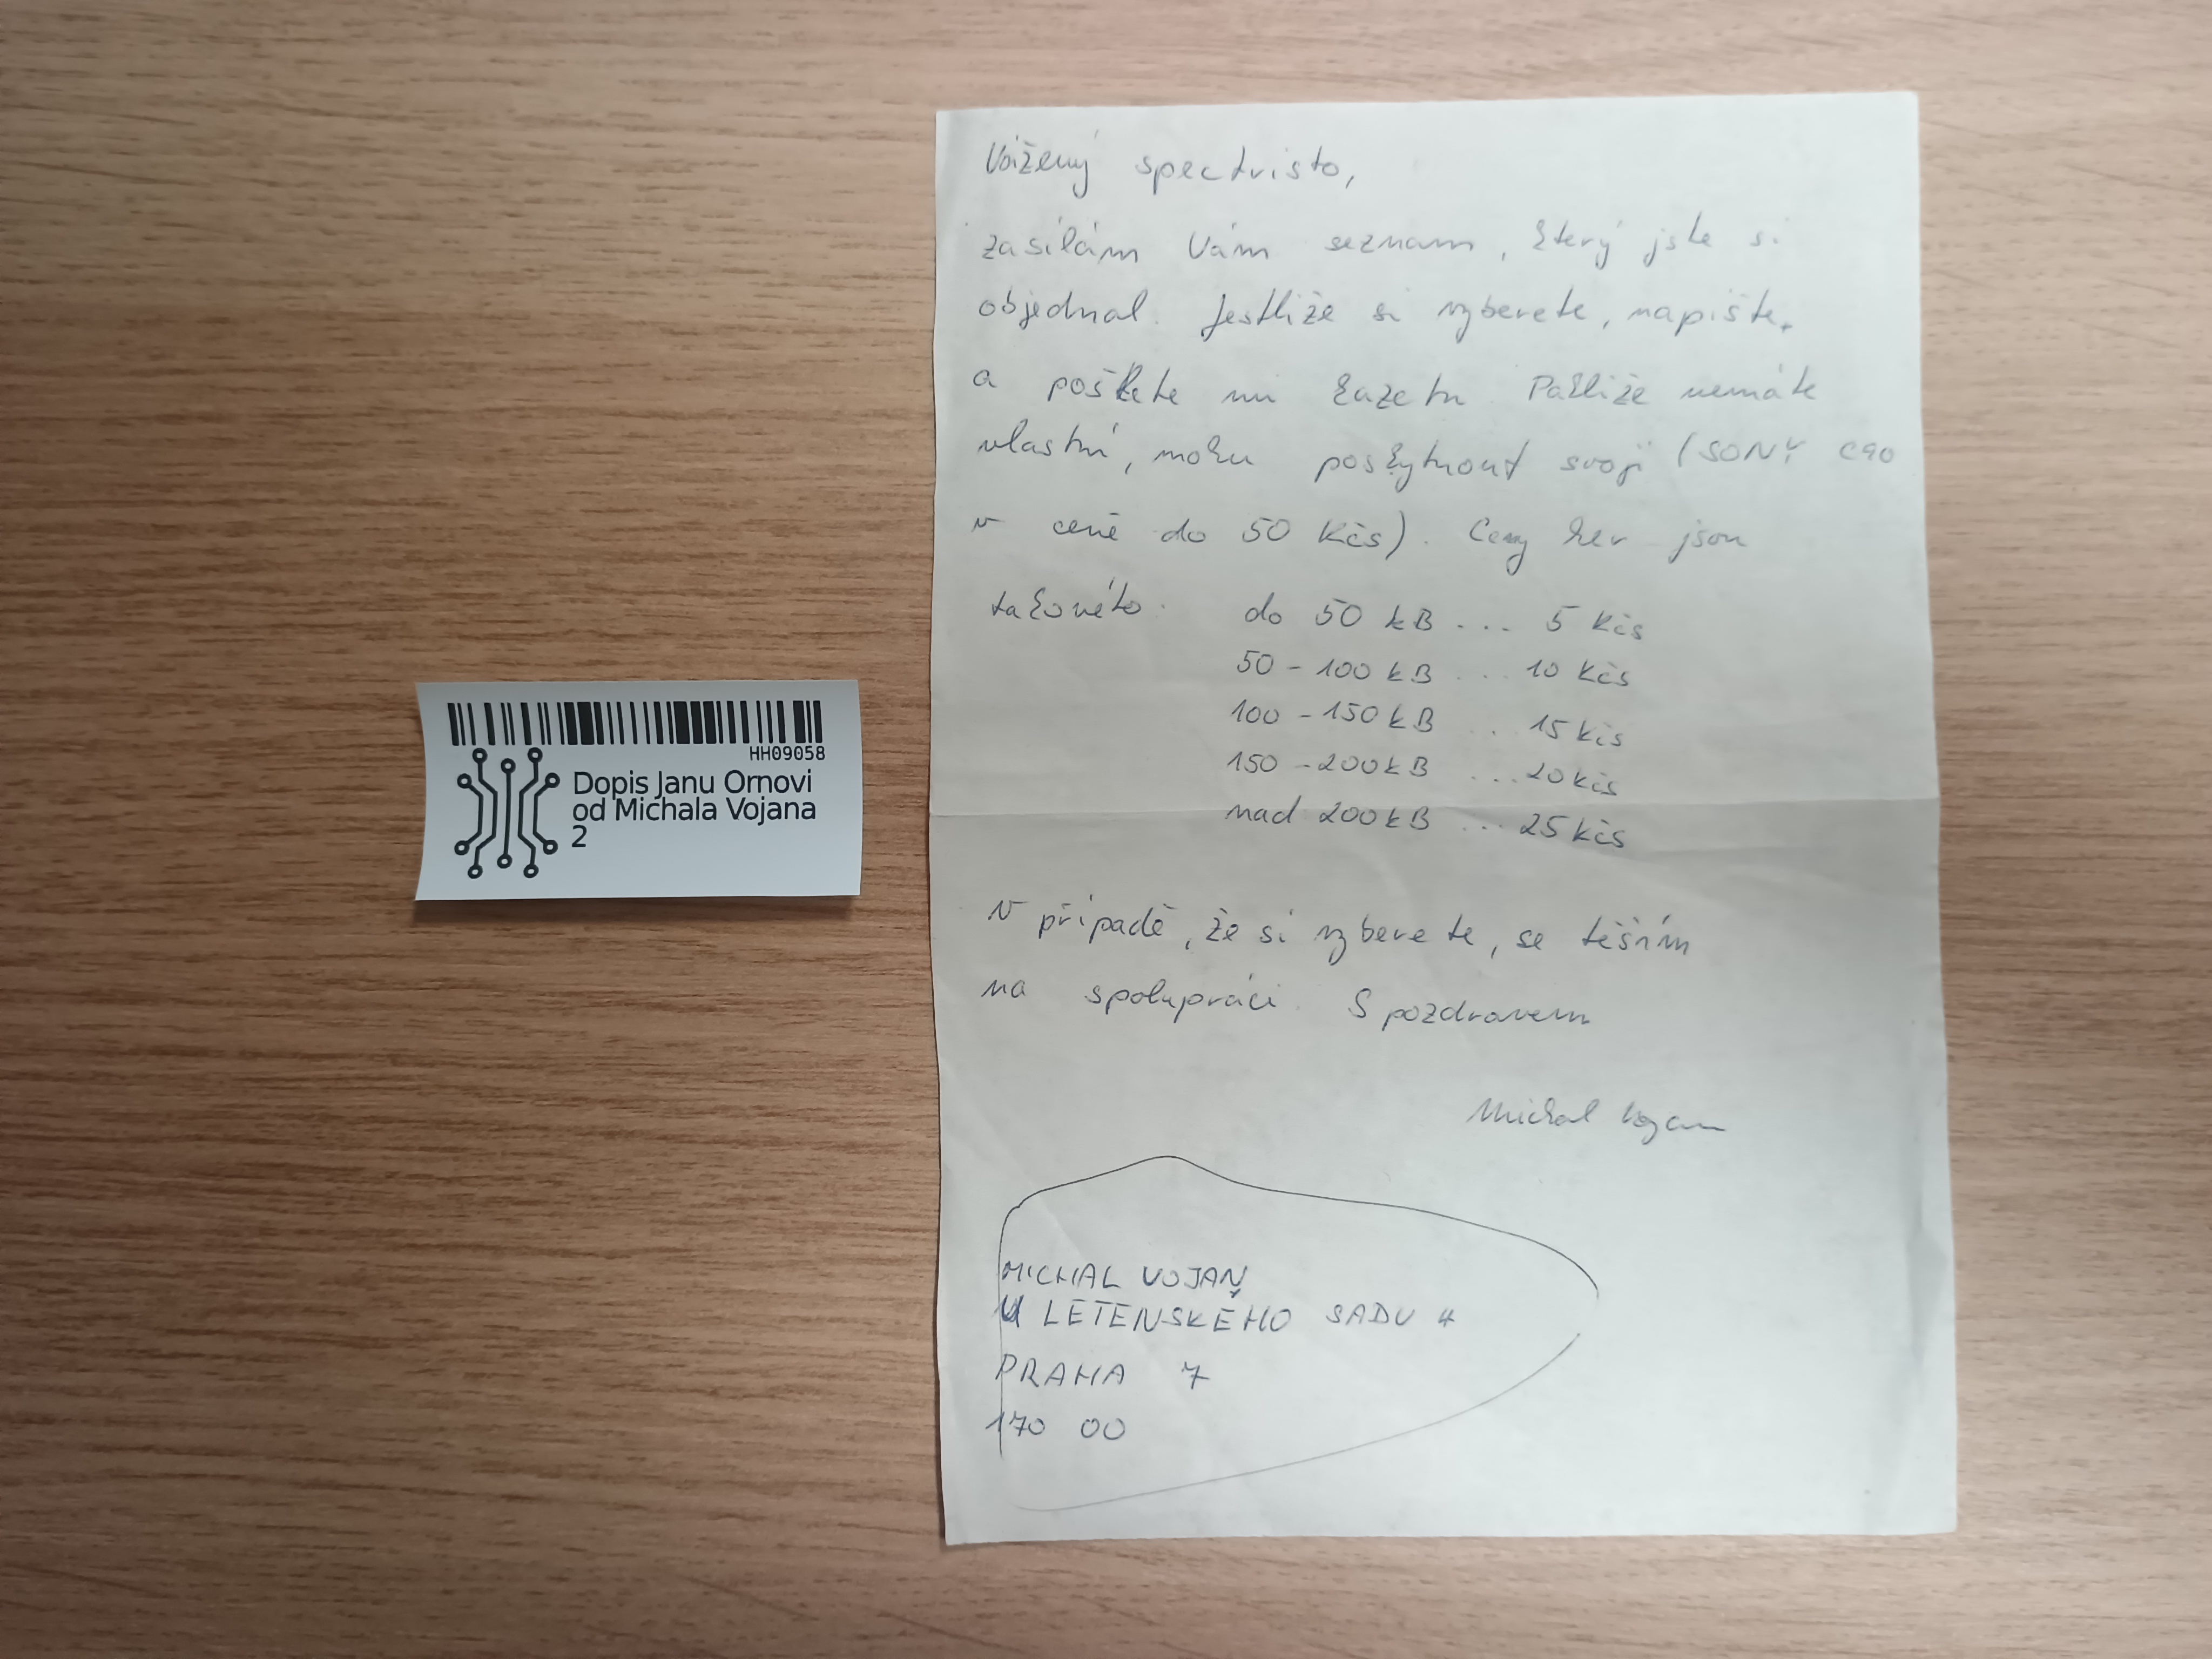 HH09058
Dopis Janu Ornovi
od Michala Vojana
2
Vážený spectristo,
zasílám Vám seznam, který jste si
objednal. Jestliže si vyberete, napište.
a pošlete mi kazetu. Pakliže nemáte
vlastní, mohu poskytnout svoji (SONY C90
v ceně do 50 Kčs). Ceny her jsou
takovéto:    do 50 kB ... 5 Kčs
50 - 100 kB ... 10 Kčs
100 - 150 kB ... 15 Kčs
150 - 200 kB ... 20 Kčs
nad 200 kB ... 25 Kčs
V případě, že si vyberete, se těším
na spolupráci. S pozdravem
Michal Vojan
MICHAL VOJAN
U LETENSKÉHO SADU 4
PRAHA 7
170 00